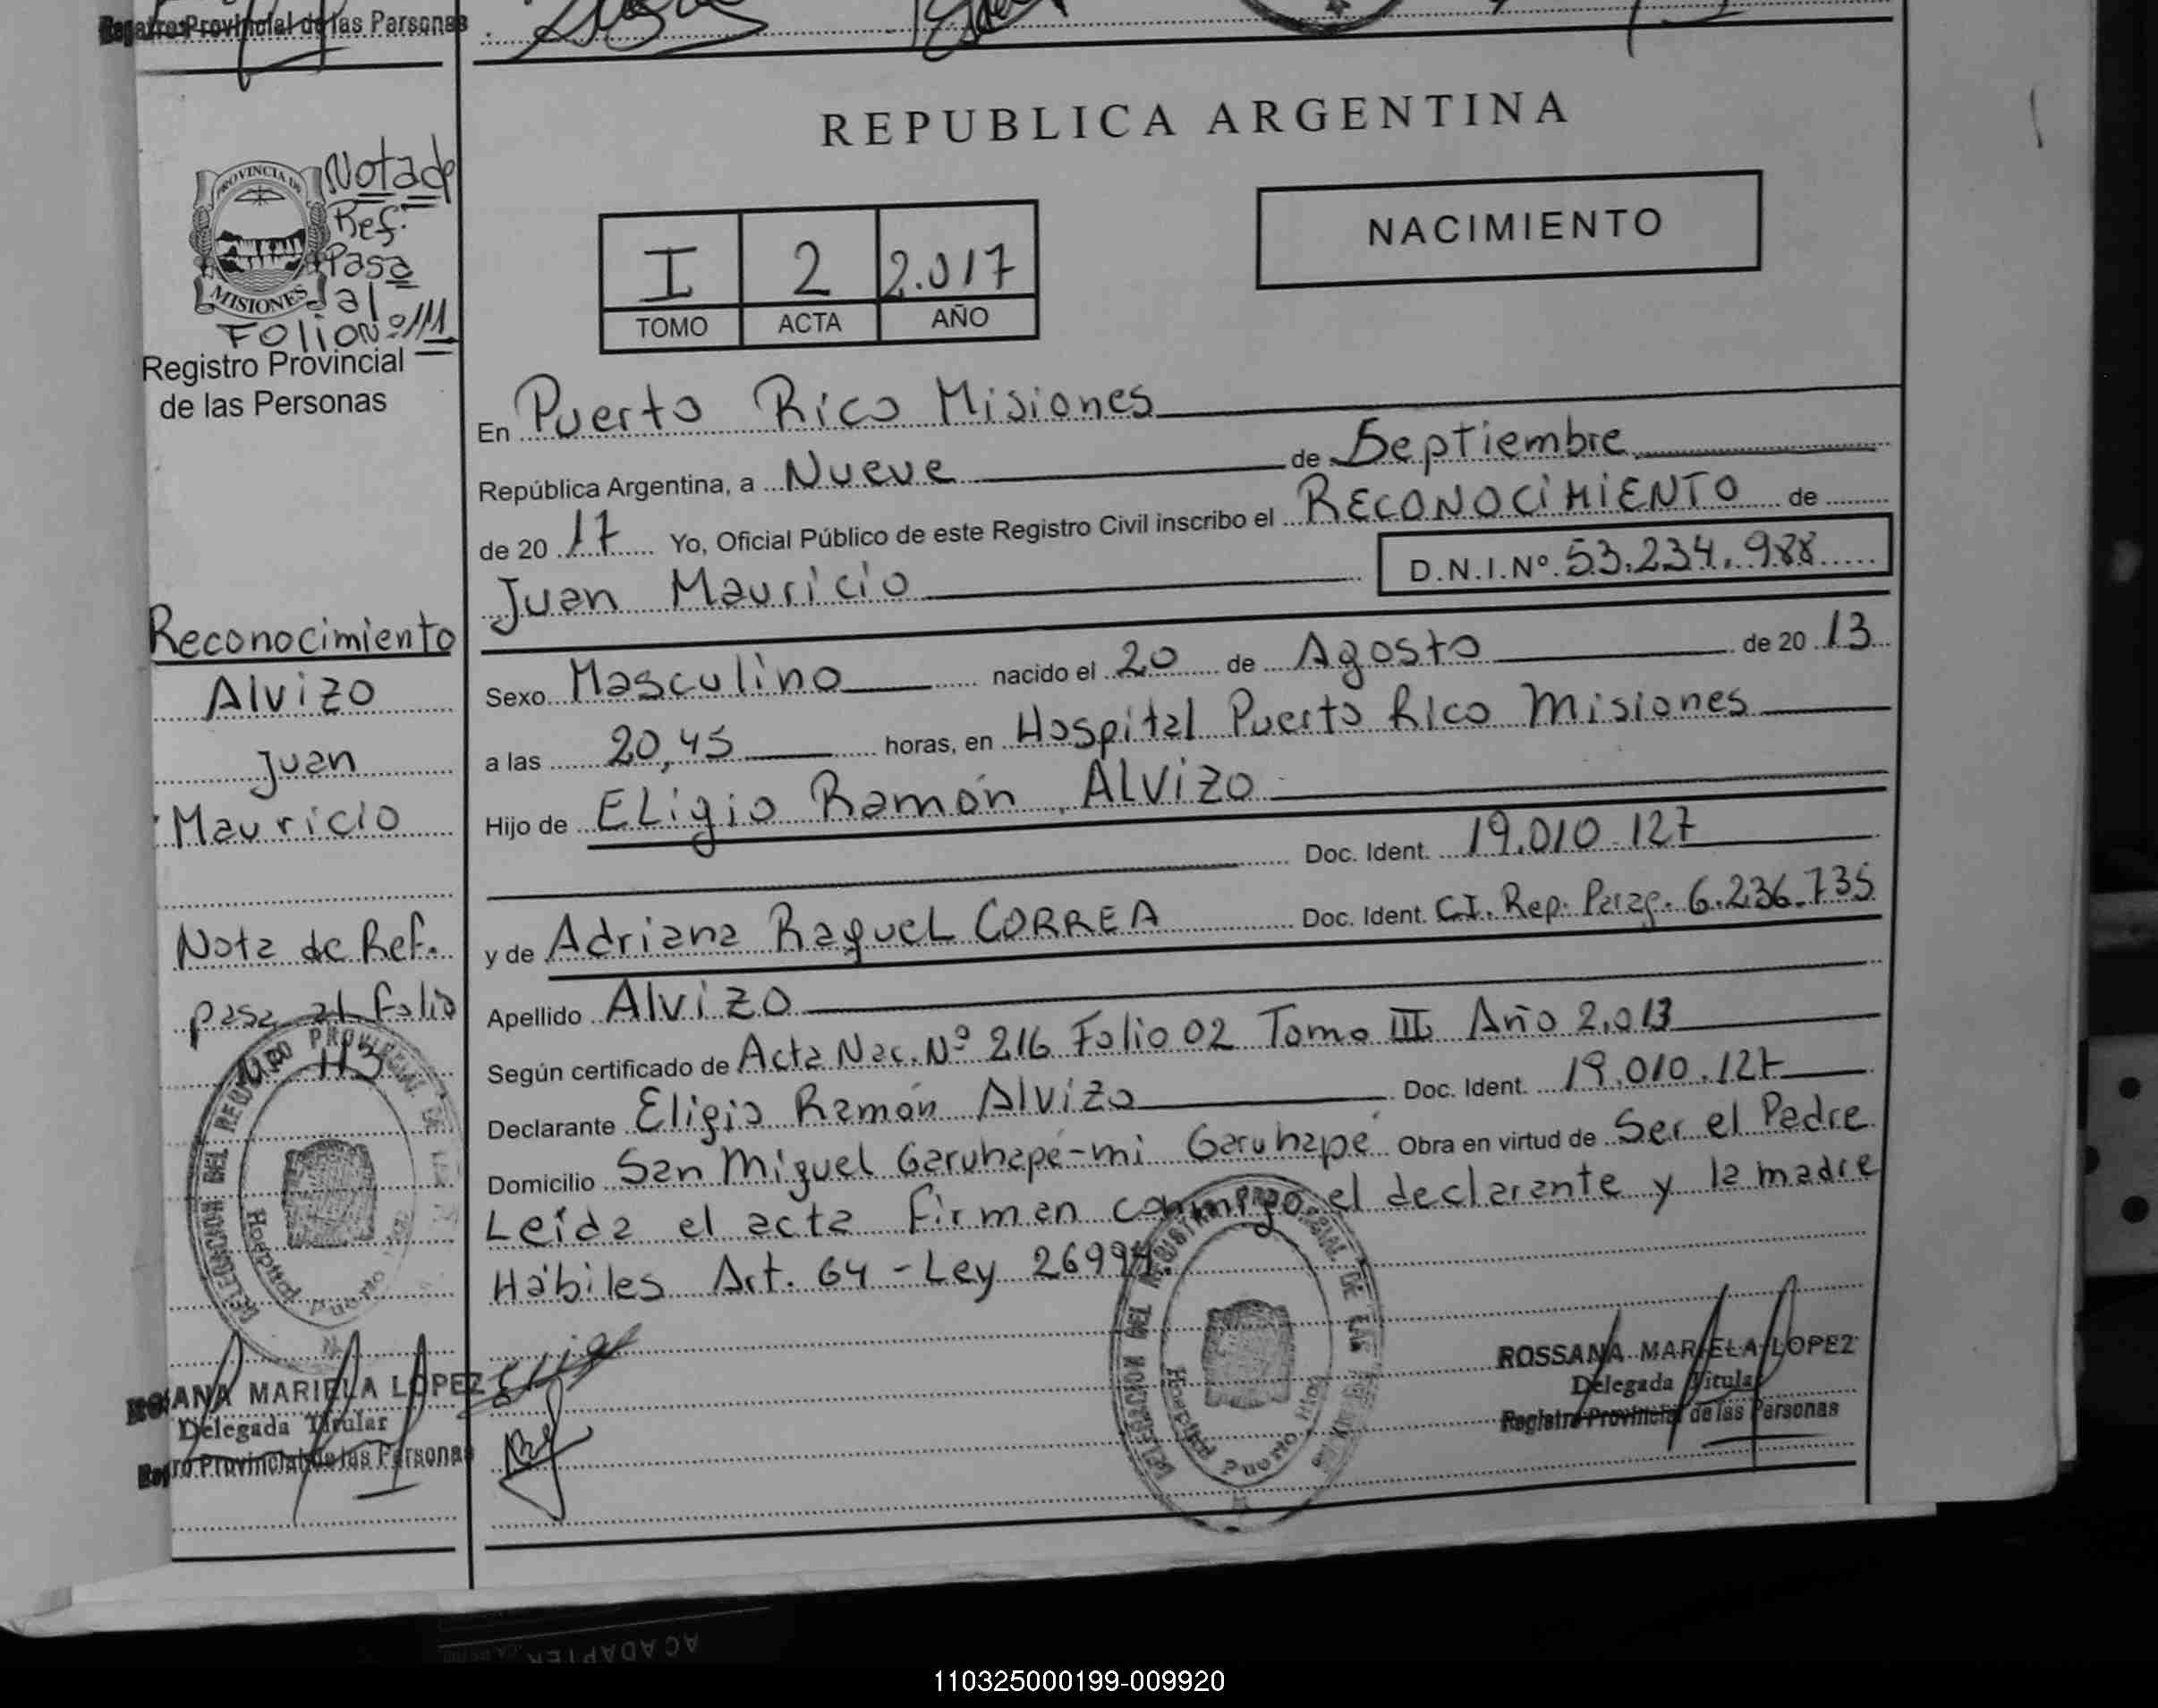 Registro Provincial de las Personas
REPUBLICA ARGENTINA
NACIMIENTO
I 2 2.017
TOMO ACTA AÑO
PROVINCIA DE
MISIONES
Nota de
Ref.
Pasa
al
Folio Nº 111
Registro Provincial
de las Personas
Reconocimiento
Alvizo
Juan
Mauricio
Nota de Ref.
pasa al folio
113
DELEGACION DEL REGISTRO PROVINCIAL DE
Hospital Puerto
MARIELA LOPEZ
Delegada Titular
Provincial de las Personas
En Puerto Rico Misiones
República Argentina, a Nueve de Septiembre
de 2017 Yo, Oficial Público de este Registro Civil inscribo el RECONOCIMIENTO de
Juan Mauricio D.N.I.Nº 53.234.988
Sexo Masculino nacido el 20 de Agosto de 2013
a las 20,45 horas, en Hospital Puerto Rico Misiones
Hijo de ELigio Ramón ALVIZO
Doc. Ident. 19.010.127
y de Adriana RaqueL CORREA Doc. Ident. CI. Rep. Parag. 6.236.735
Apellido Alvizo
Según certificado de Acta Nac. Nº 216 Folio 02 Tomo III Año 2.013
Declarante Eligio Ramón Alvizo Doc. Ident. 19.010.127
Domicilio San Miguel Garuhapé-mi Garuhapé Obra en virtud de Ser el Padre
Leída el acta firman conmigo el declarante y la madre
Hábiles Art. 64 - Ley 26994.
DELEGACION DEL REGISTRO PROVINCIAL DE LAS
Hospital Puerto Rico
ROSSANA MARIELA LOPEZ
Delegada Titular
Registro Provincial de las Personas
AC ADAPTER
110325000199-009920